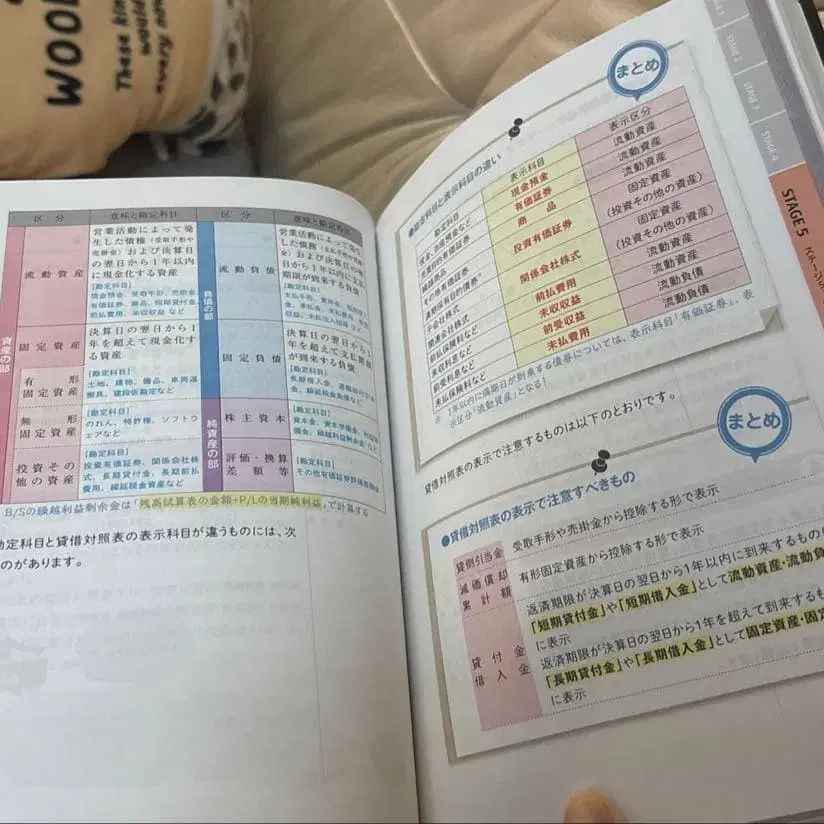 WOOL
These kin
would
every now
区分 意味と勘定科目 区分 意味と勘定科目
資産の部
流動資産
営業活動によって発
生した債権(受取手形や
売掛金)および決算日
の翌日から1年以内
に現金化する資産
[勘定科目]
現金預金、受取手形、売掛金
有価証券、商品、短期貸付金
前払費用、未収収益 など
固定資産
決算日の翌日から1
年を超えて現金化す
る資産
有形
固定資産
[勘定科目]
土地、建物、備品、車両運
搬具、建設仮勘定など
無形
固定資産
[勘定科目]
のれん、特許権、ソフトウ
ェアなど
投資その
他の資産
[勘定科目]
投資有価証券、関係会社株
式、長期貸付金、長期前払
費用、繰延税金資産など
負債の部
流動負債
営業活動によって発
生した債務(支払手形や
金)および決算日の翌
日から1年以内に支払
期限が到来する負債
[勘定科目]
固定負債
決算日の翌日から1
年を超えて支払期限
が到来する負債
[勘定科目]
純資産の部
株主資本
[勘定科目]
資本金、資本準備金、利益
備金、繰越利益剰余金など
評価・換算
差額等
[勘定科目]
その他有価証券評価差額金
B/Sの繰越利益剰余金は「残高試算表の金額+P/Lの当期純利益」で計算する
勘定科目と貸借対照表の表示科目が違うものには、次
のがあります。
STAGE 2
STAGE 3
STAGE 4
STAGE 5
まとめ
●勘定科目と表示科目の違い
勘定科目 表示科目 表示区分
現金、当座預金など 現金預金 流動資産
売買目的有価証券 有価証券 流動資産
繰越商品 商品 流動資産
その他有価証券
満期保有目的債券※
投資有価証券 固定資産
(投資その他の資産)
子会社株式
関連会社株式
関係会社株式 固定資産
(投資その他の資産)
前払保険料など 前払費用 流動資産
未収利息など 未収収益 流動資産
前受利息など 前受収益 流動負債
未払保険料など 未払費用 流動負債
※ 1年以内に満期日が到来する債券については、表示科目「有価証券」、表
示区分「流動資産」となる!
貸借対照表の表示で注意するものは以下のとおりです。
まとめ
●貸借対照表の表示で注意すべきもの
貸倒引当金 受取手形や売掛金から控除する形で表示
減価償却
累計額
有形固定資産から控除する形で表示
貸付金
借入金
返済期限が決算日の翌日から1年以内に到来するもの
「短期貸付金」や「短期借入金」として流動資産・流動負
に表示
返済期限が決算日の翌日から1年を超えて到来するも
「長期貸付金」や「長期借入金」として固定資産・固定
に表示